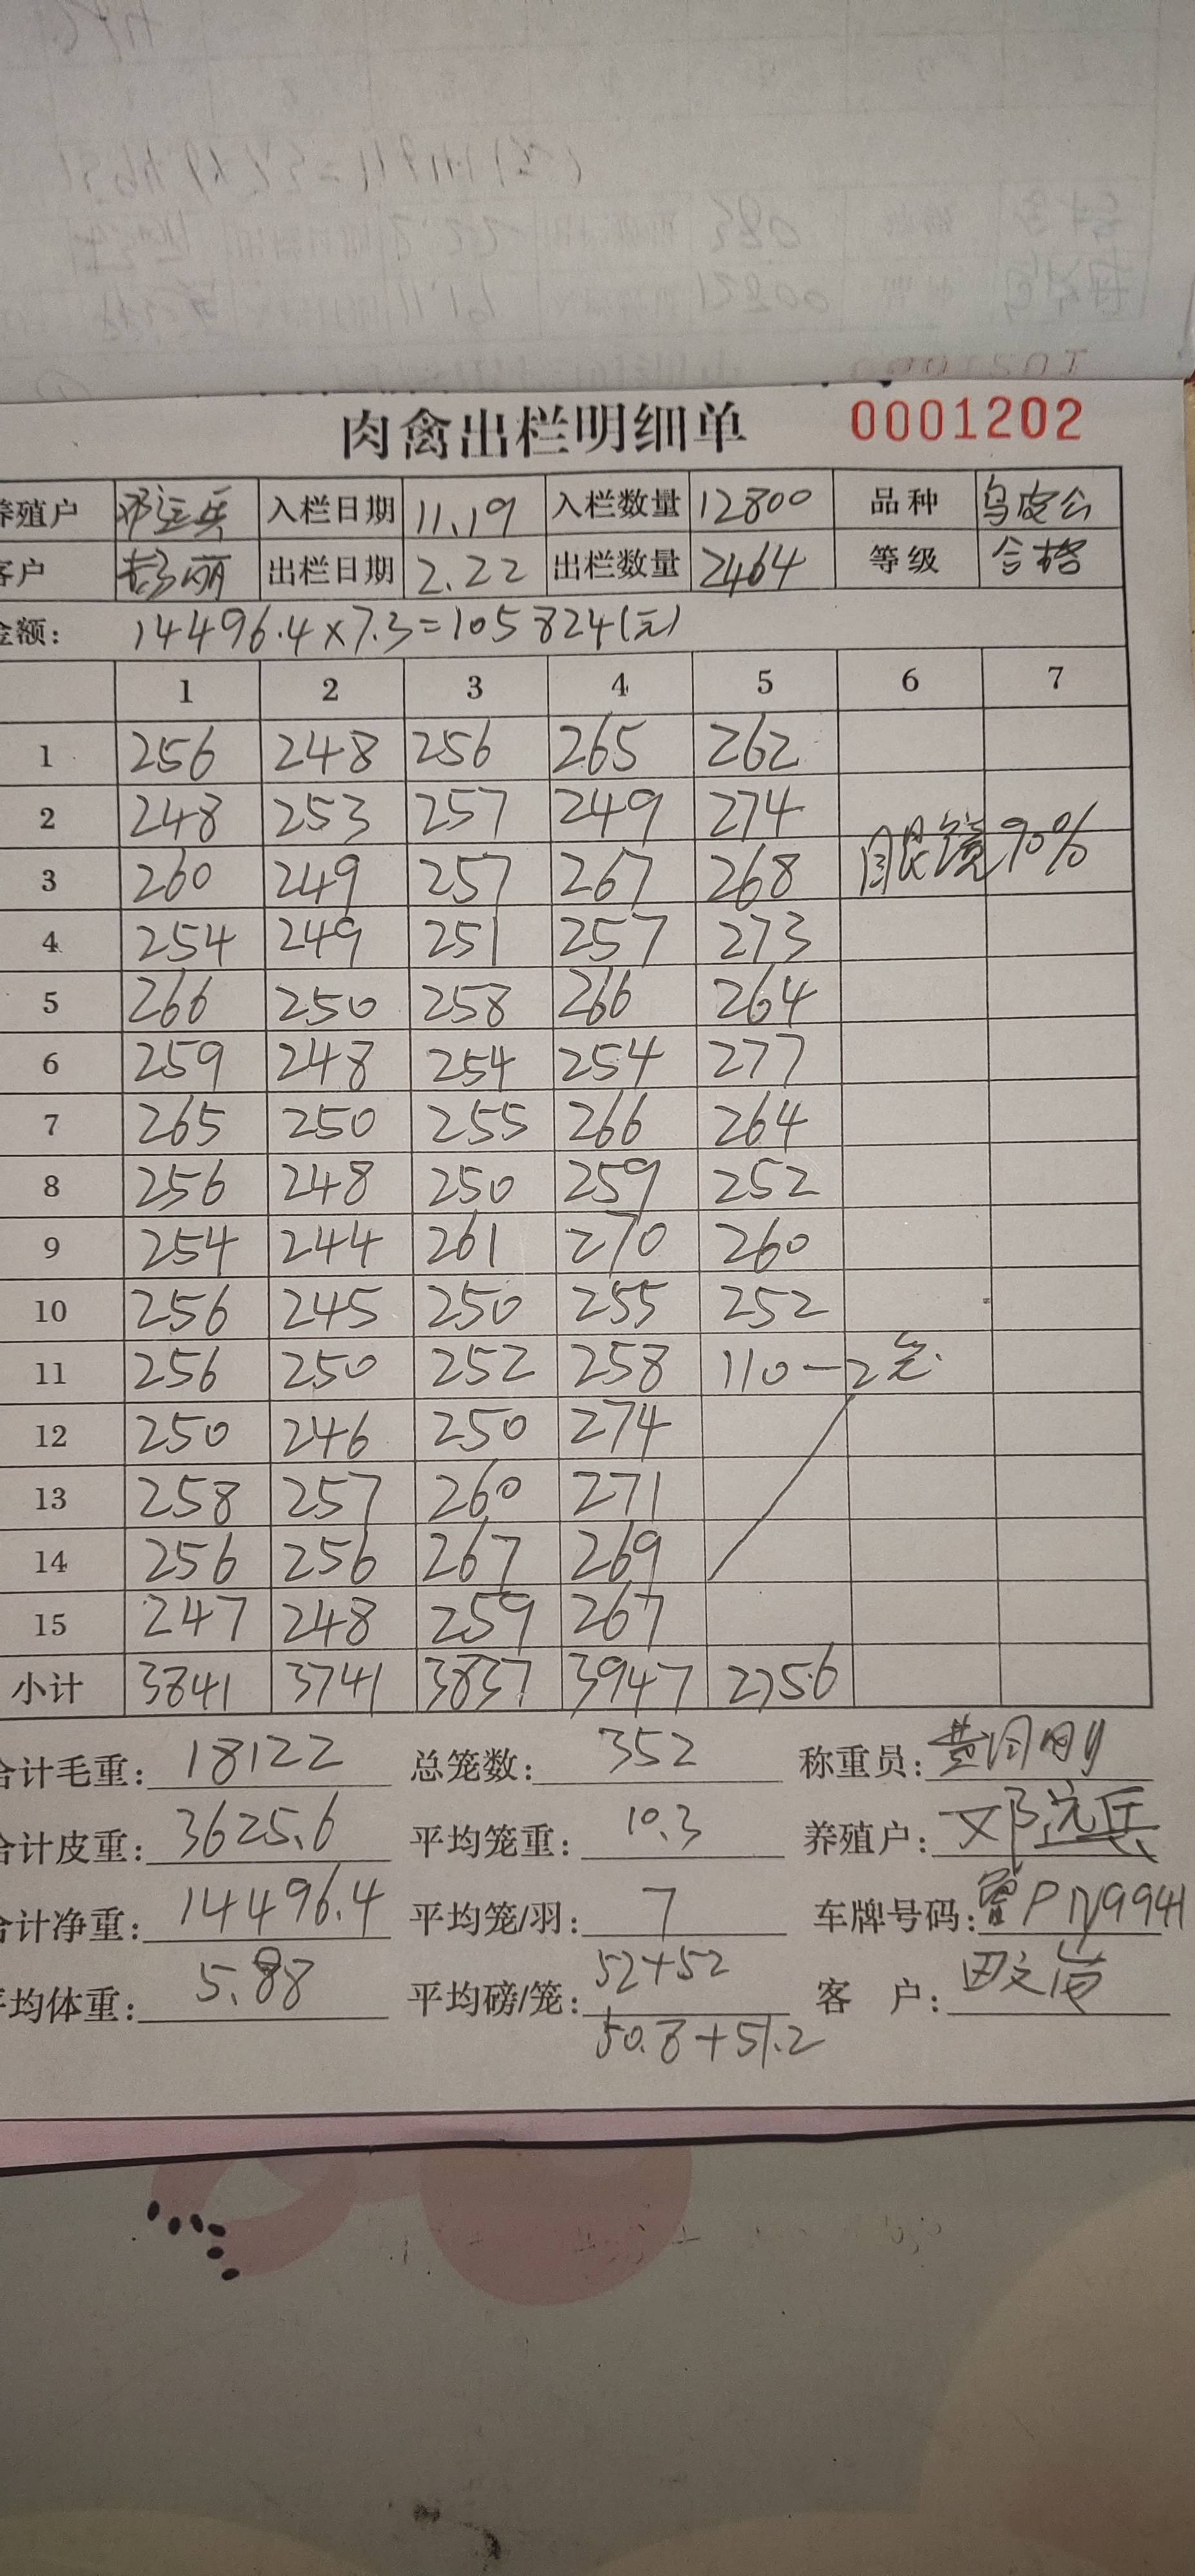 肉禽出栏明细单 0001202
养殖户 邓运兵 入栏日期 11.19 入栏数量 12800 品种 乌皮公
客户 彭丽 出栏日期 2.22 出栏数量 2464 等级 合格
金额: 14496.4×7.3=105824(元)
1 2 3 4 5 6 7
1 256 248 256 265 262
2 248 253 257 249 274
3 260 249 257 267 268 眼镜90%
4 254 249 251 257 273
5 266 250 258 266 264
6 259 248 254 254 277
7 265 250 255 266 264
8 256 248 250 259 252
9 254 244 261 270 260
10 256 245 250 255 252
11 256 250 252 258 110-2笼.
12 250 246 250 274
13 258 257 260 271
14 256 256 267 269
15 247 248 259 267
小计 3841 3741 3837 3947 2756
合计毛重: 18122 总笼数: 352 称重员:
合计皮重: 3625.6 平均笼重: 10.3 养殖户: 邓运兵
合计净重: 14496.4 平均笼/羽: 7 车牌号码:
平均体重: 5.88 平均磅/笼: 52+52 客 户:
50.8+51.2